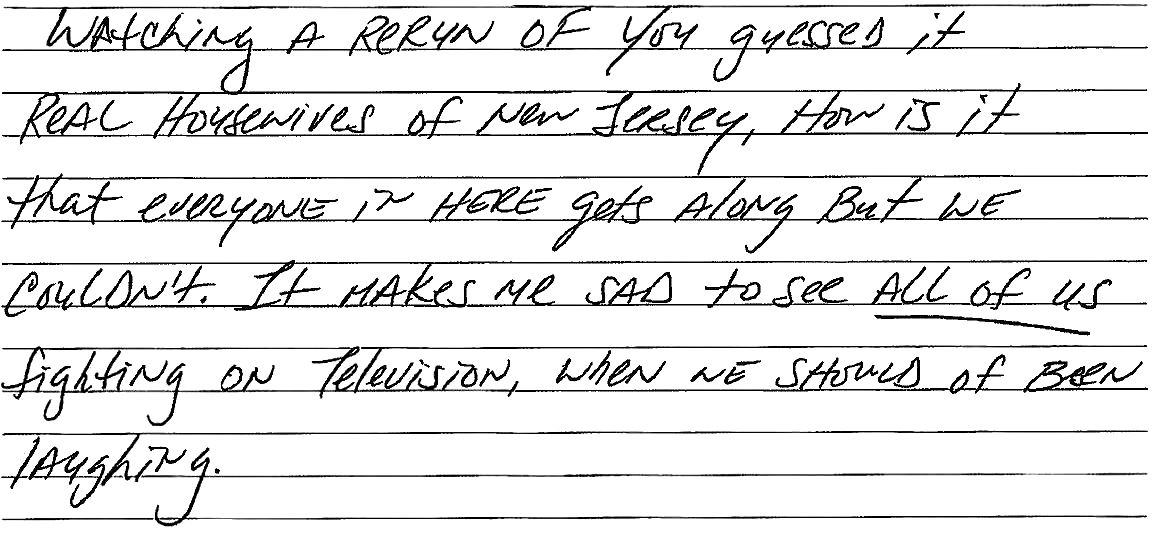 Watching A Rerun of you guessed it
Real Housewives of New Jersey, How is it
that everyone in HERE gets Along But WE
couldn't. It makes me SAD to see All of us
fighting on Television, when we should of Been
laughing.